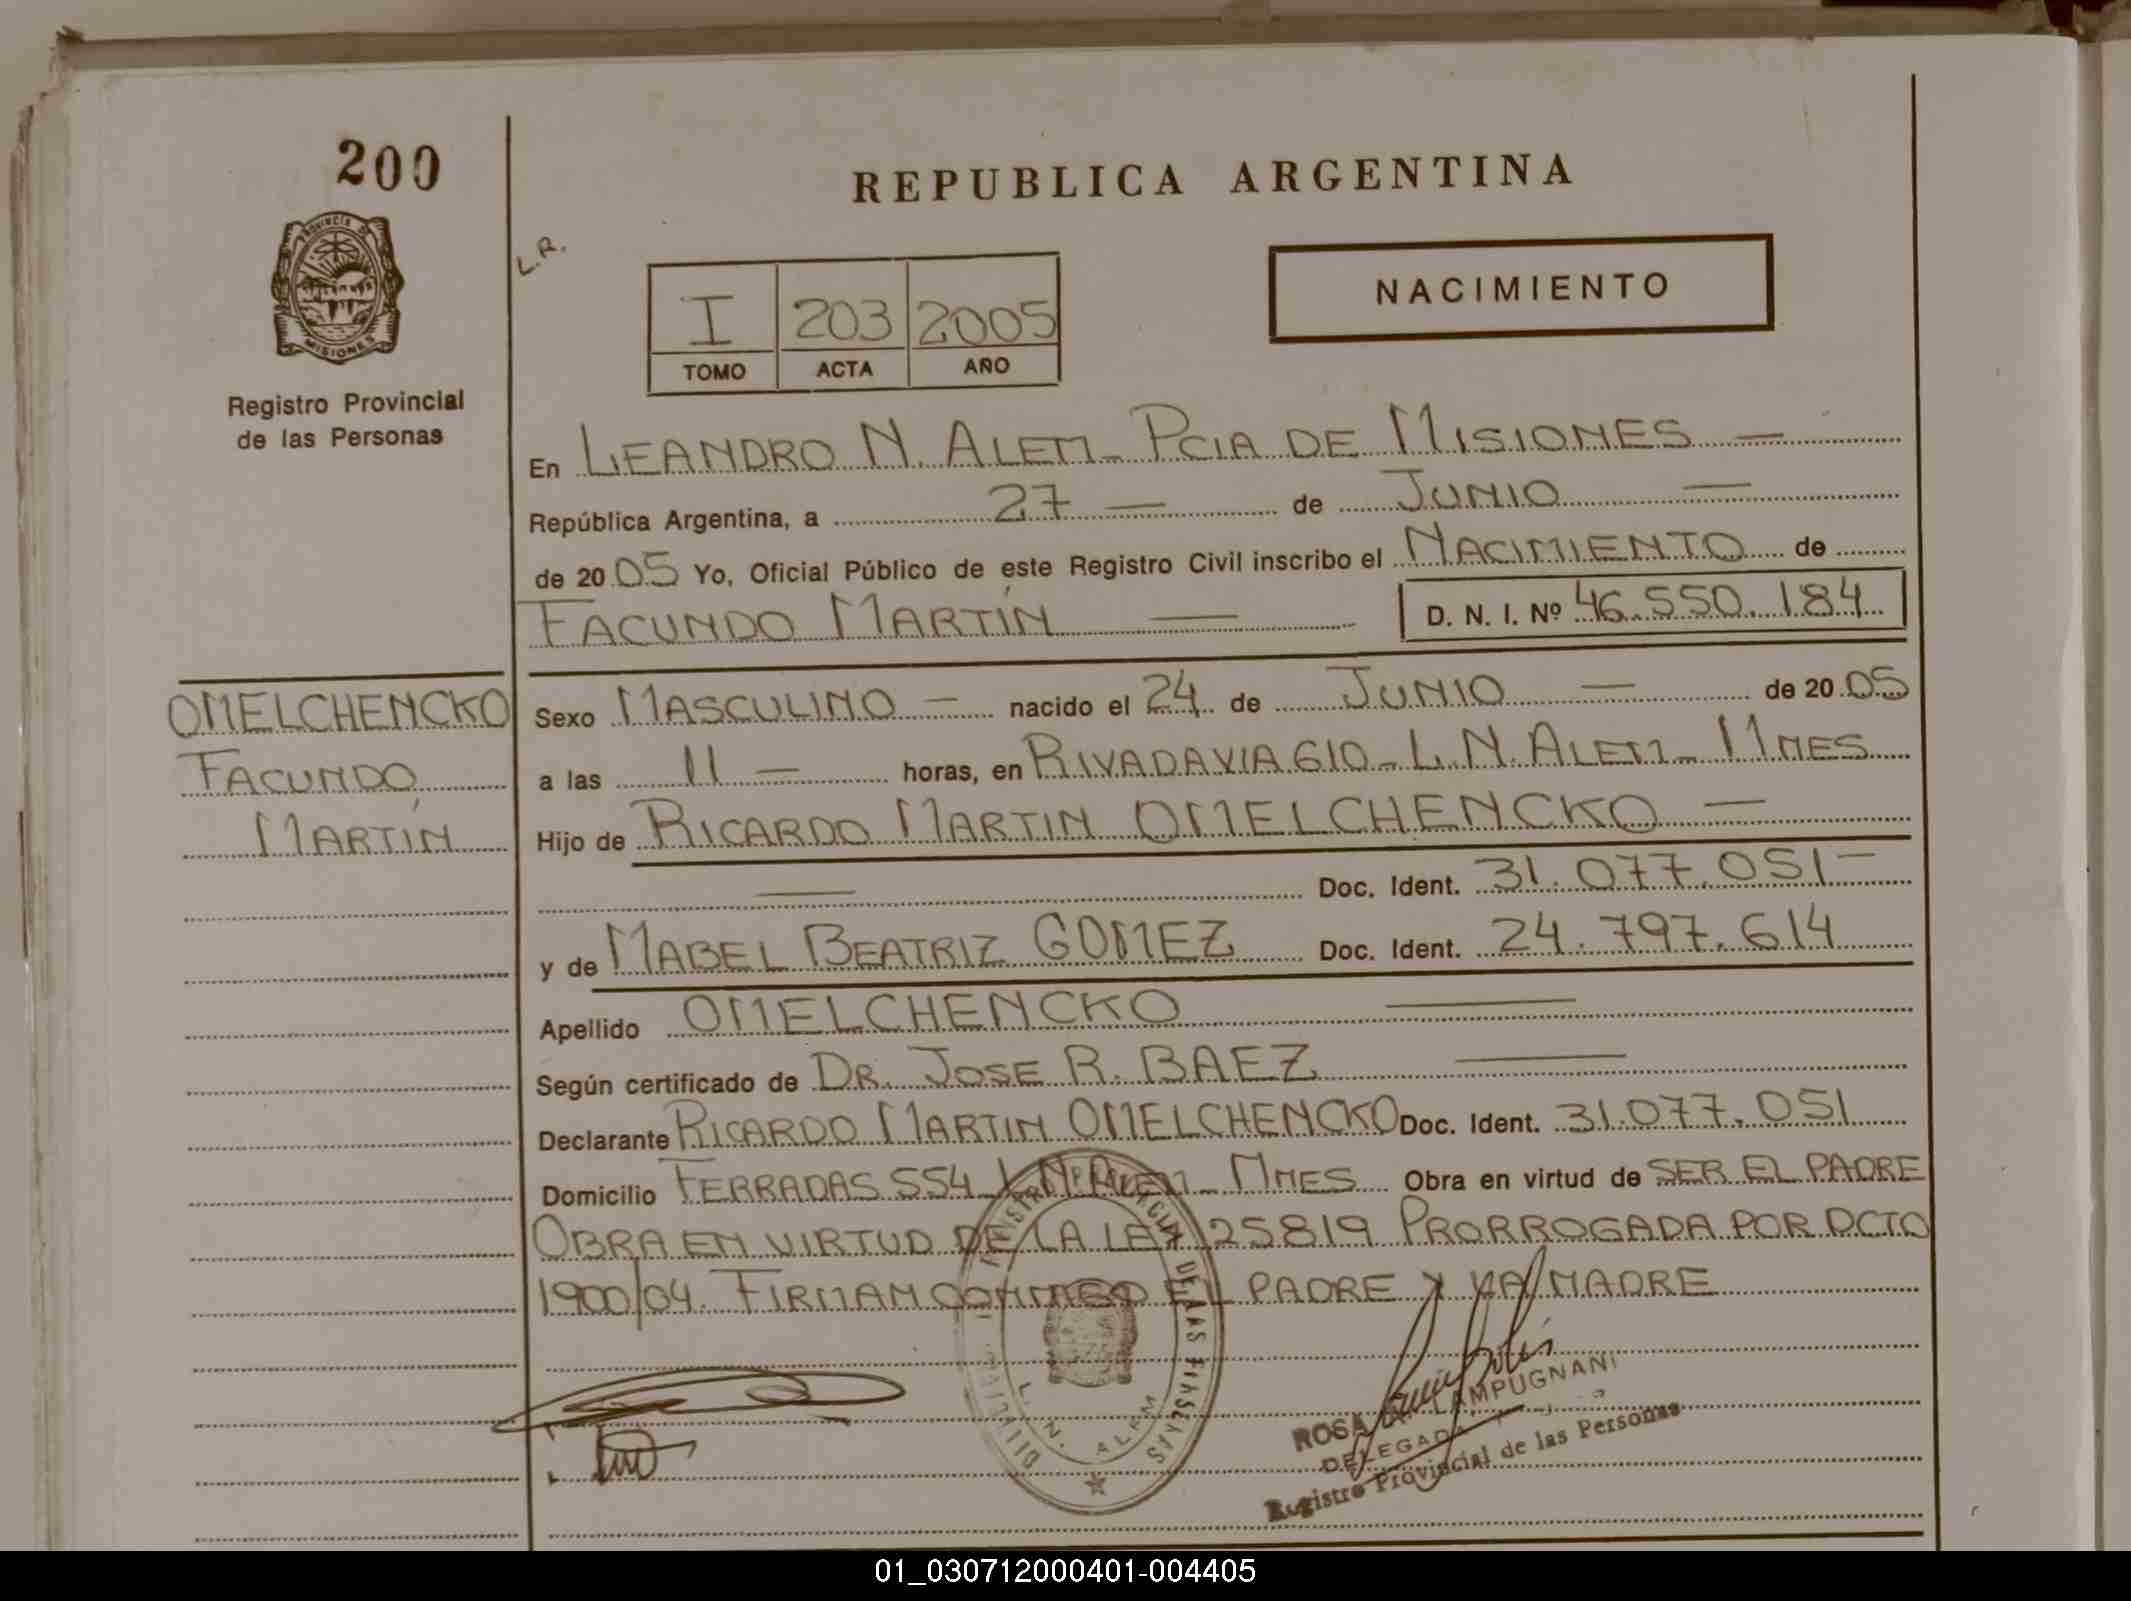 200
REPUBLICA ARGENTINA
L.R.
PROVINCIA DE
MISIONES
I 203 2005
TOMO ACTA AÑO
NACIMIENTO
Registro Provincial
de las Personas
En LEANDRO N. ALEM - PCIA DE MISIONES —
República Argentina, a 27 — de JUNIO —
de 2005 Yo, Oficial Público de este Registro Civil inscribo el NACIMIENTO de
FACUNDO MARTÍN — D. N. I. Nº 46.550.184
OMELCHENCKO
FACUNDO
MARTÍN
Sexo MASCULINO — nacido el 24 de JUNIO — de 2005
a las 11 — horas, en RIVADAVIA 610 - L.N. ALEM - MNES
Hijo de RICARDO MARTIN OMELCHENCKO —
— Doc. Ident. 31.077.051 —
y de MABEL BEATRIZ GOMEZ Doc. Ident. 24.797.614
Apellido OMELCHENCKO —
Según certificado de DR. JOSE R. BAEZ —
Declarante RICARDO MARTIN OMELCHENCKO Doc. Ident. 31.077.051
Domicilio FERRADAS 554 L.N. ALEM - MNES Obra en virtud de SER EL PADRE
OBRA EN VIRTUD DE LA LEY 25819 PRORROGADA POR DCTO
1900/04. FIRMAN CONMIGO EL PADRE Y LA MADRE
L. N. ALEM
ROSA LAMPUGNANI
DELEGADA
Registro Provincial de las Personas
01_030712000401-004405